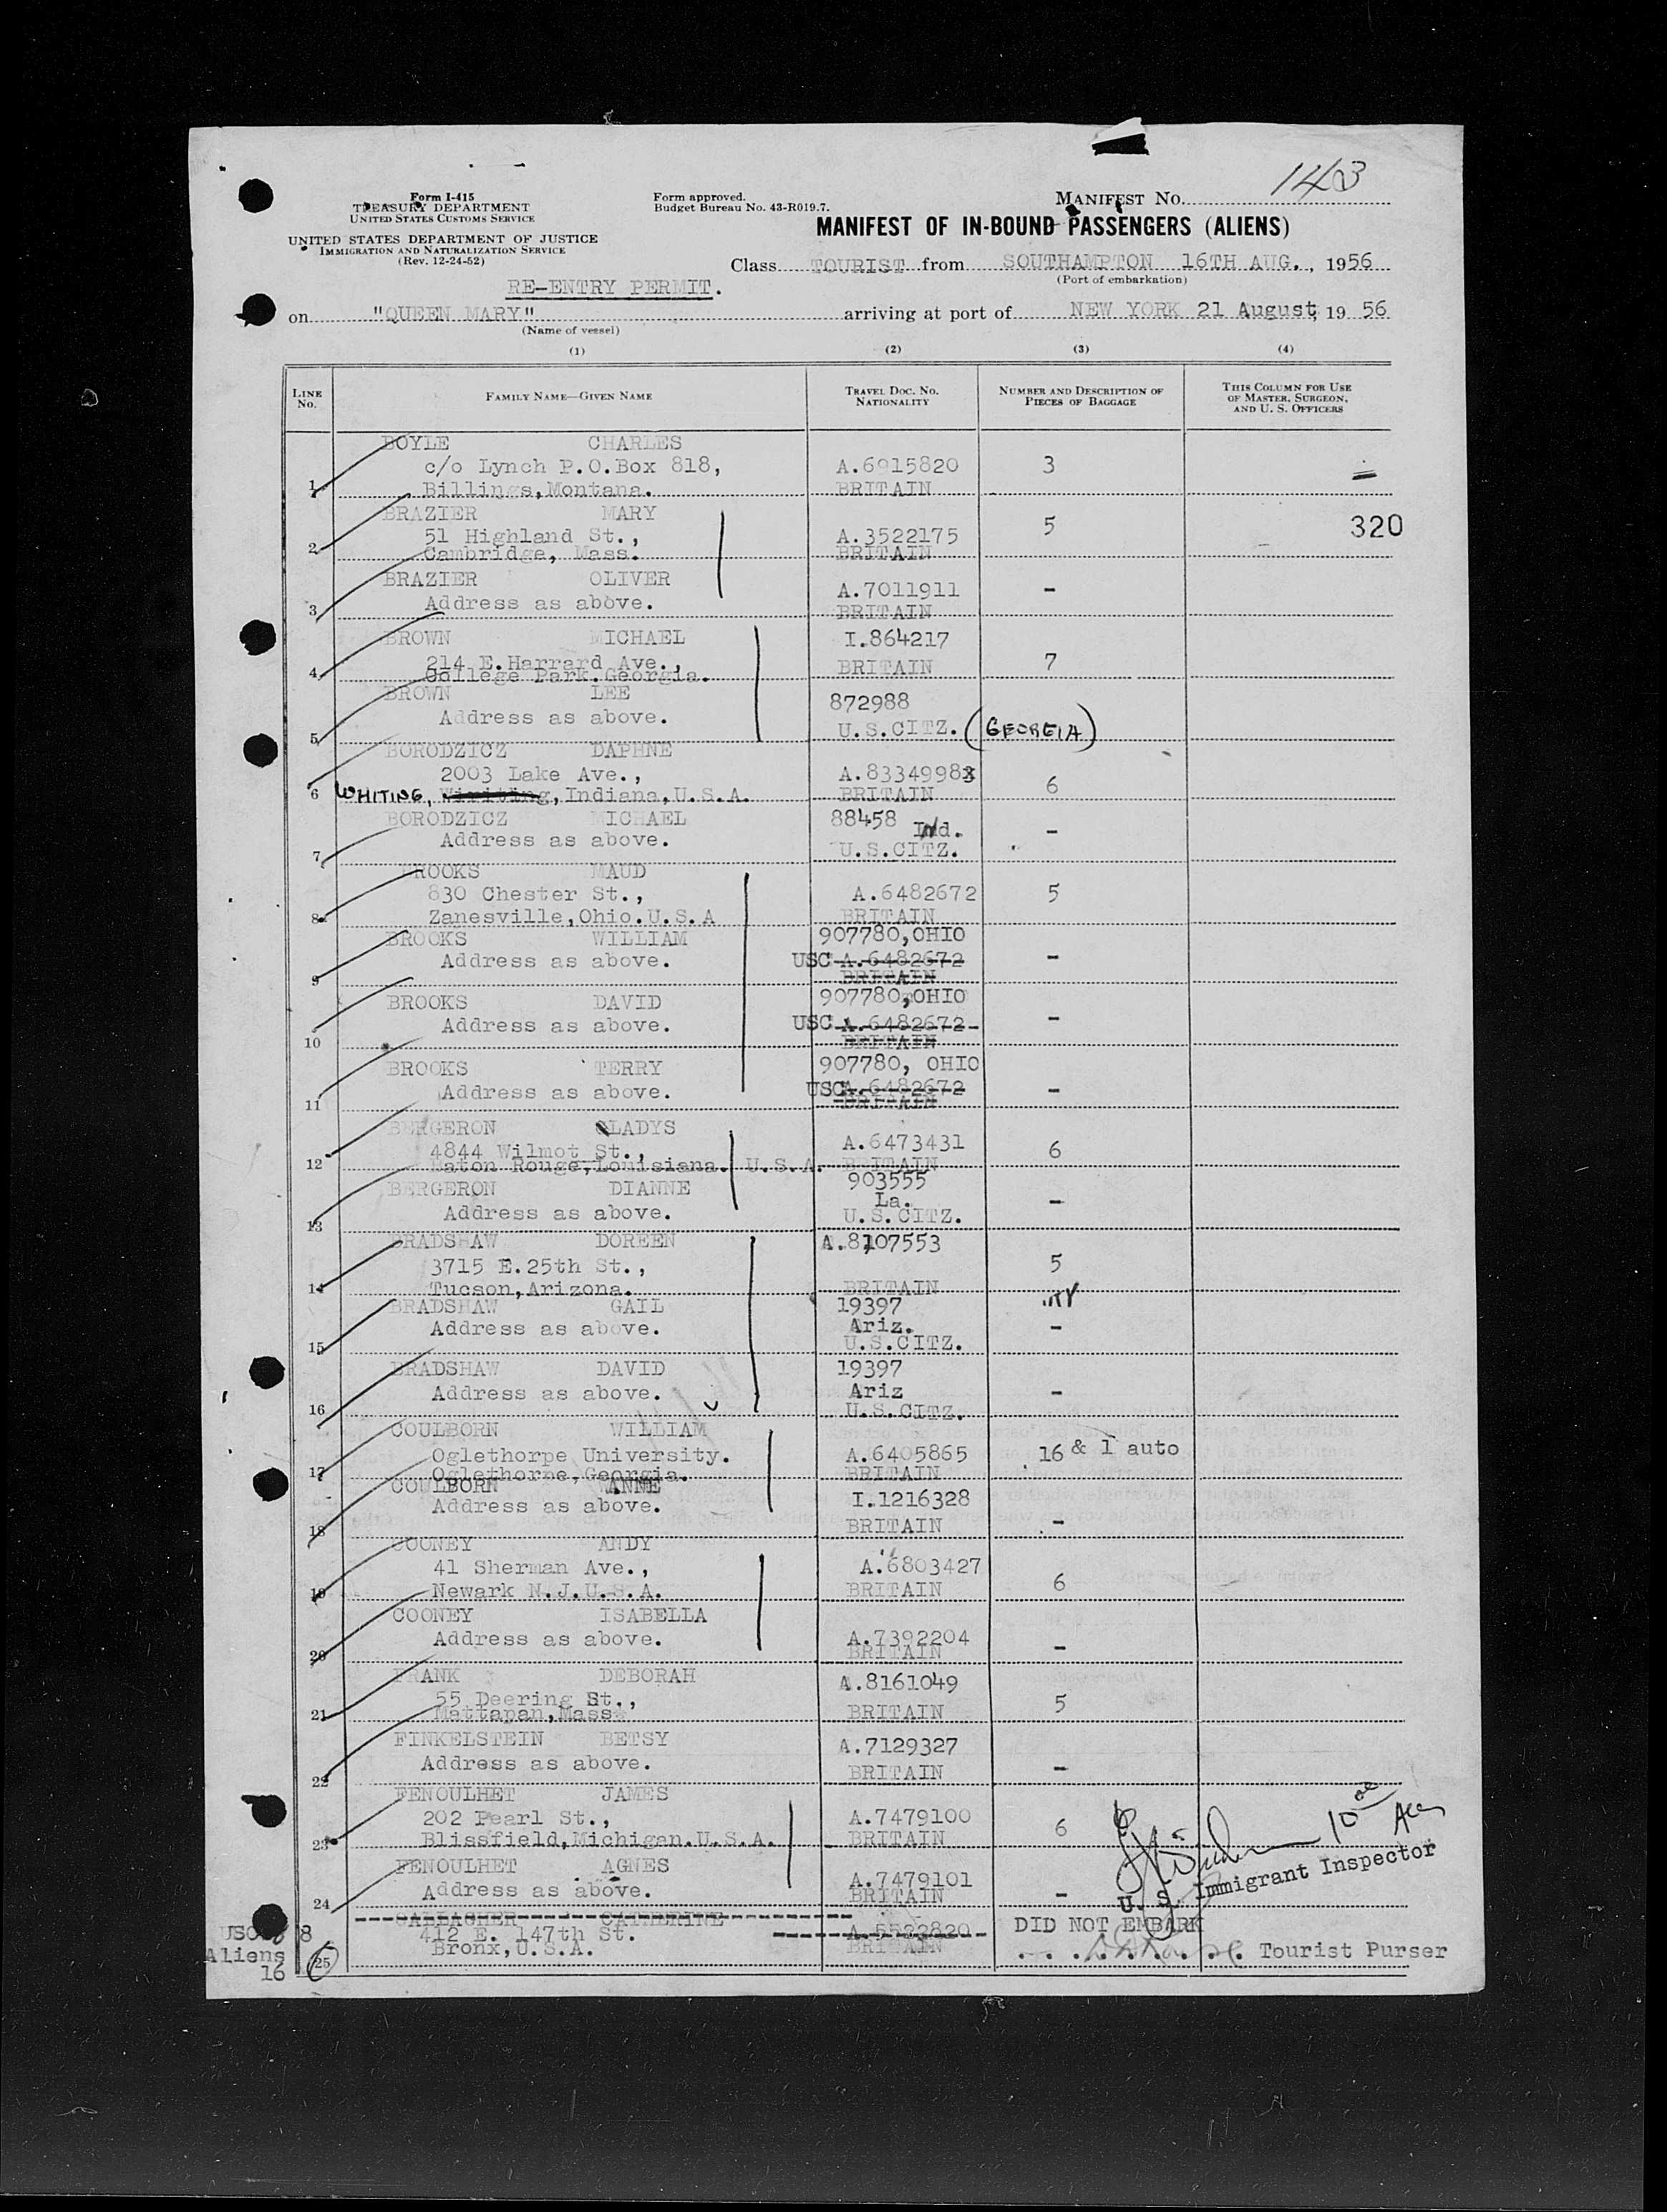 143
Form I-415
TREASURY DEPARTMENT
UNITED STATES CUSTOMS SERVICE
Form approved.
Budget Bureau No. 43-R019.7.
MANIFEST No.
MANIFEST OF IN-BOUND PASSENGERS (ALIENS)
UNITED STATES DEPARTMENT OF JUSTICE
IMMIGRATION AND NATURALIZATION SERVICE
(Rev. 12-24-52)
Class TOURIST from SOUTHAMPTON 16TH AUG., 1956
(Port of embarkation)
RE-ENTRY PERMIT.
on "QUEEN MARY" arriving at port of NEW YORK 21 August, 19 56
(Name of vessel)
(1) (2) (3) (4)
LINE No. FAMILY NAME—GIVEN NAME TRAVEL DOC. No. NATIONALITY NUMBER AND DESCRIPTION OF PIECES OF BAGGAGE THIS COLUMN FOR USE OF MASTER, SURGEON, AND U. S. OFFICERS
BOYLE CHARLES
c/o Lynch P.O.Box 818, A.6915820 3
1 Billings,Montana. BRITAIN
BRAZIER MARY
51 Highland St., A.3522175 5 320
2 Cambridge, Mass. BRITAIN
BRAZIER OLIVER A.7011911 -
3 Address as above. BRITAIN
BROWN MICHAEL I.864217
214 E.Harrard Ave., BRITAIN 7
4 College Park.Georgia.
BROWN LEE 872988
Address as above. U.S.CITZ. (GEORGIA)
5
BORODZICZ DAPHNE
2003 Lake Ave., A.83349983
6 WHITING, Indiana,U.S.A. BRITAIN 6
BORODZICZ MICHAEL 88458 Ind.
Address as above. -
7 U.S.CITZ.
BROOKS MAUD
830 Chester St., A.6482672 5
8 Zanesville,Ohio.U.S.A BRITAIN
BROOKS WILLIAM 907780,OHIO
Address as above. USC A.6482672 -
9 BRITAIN
BROOKS DAVID 907780,OHIO
Address as above. USC A.6482672 -
10 BRITAIN
BROOKS TERRY 907780, OHIO
Address as above. USC A.6482672 -
11 BRITAIN
BERGERON GLADYS
4844 Wilmot St., A.6473431 6
12 Baton Rouge,Louisiana. U.S.A. BRITAIN
BERGERON DIANNE 903555
La. -
Address as above. U.S.CITZ.
13
BRADSHAW DOREEN A.8107553
3715 E.25th St., 5
14 Tucson,Arizona. BRITAIN
BRADSHAW GAIL 19397
Address as above. Ariz. -
15 U.S.CITZ.
BRADSHAW DAVID 19397
Address as above. Ariz -
16 U.S.CITZ.
COULBORN WILLIAM
Oglethorpe University. A.6405865 16 & 1 auto
17 Oglethorpe,Georgia. BRITAIN
COULBORN ANNE
Address as above. I.1216328
18 BRITAIN -
COONEY ANDY
41 Sherman Ave., A.6803427
19 Newark N.J.U.S.A. BRITAIN 6
COONEY ISABELLA
Address as above. A.7392204 -
20 BRITAIN
FRANK DEBORAH A.8161049
55 Deering St., 5
21 Mattapan,Mass BRITAIN
FINKELSTEIN BETSY A.7129327
Address as above. BRITAIN -
22
FENOULHET JAMES
202 Pearl St., A.7479100 6
23 Blissfield,Michigan.U.S.A. BRITAIN
FENOULHET AGNES A.7479101
Address as above. BRITAIN -
24
U. S. Immigrant Inspector
GALLAGHER CATHERINE
412 E. 147th St. A.5522820 DID NOT EMBARK
25 Bronx,U.S.A. BRITAIN Tourist Purser
USC 8
Aliens
16